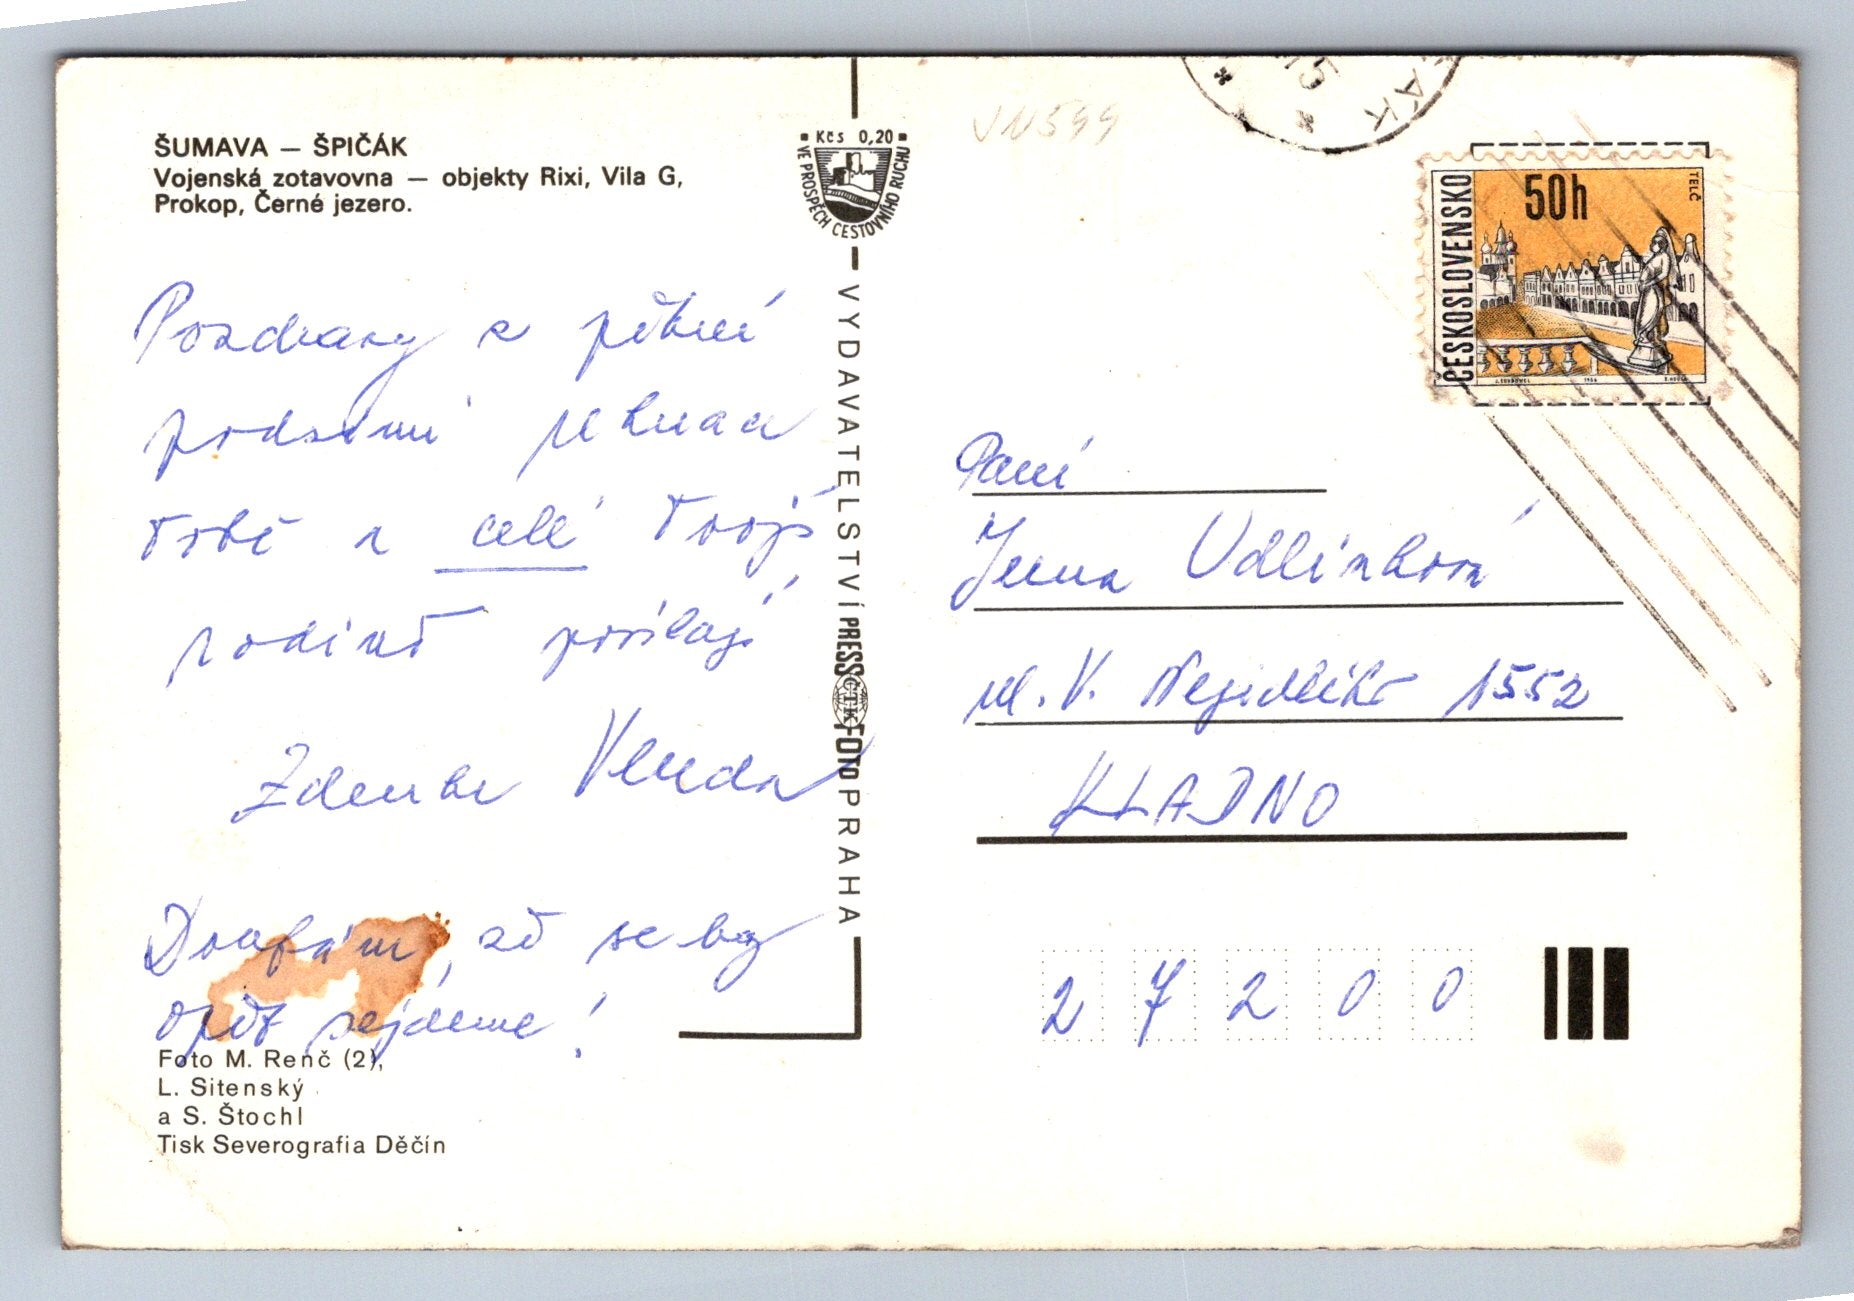 ŠUMAVA — ŠPIČÁK
Vojenská zotavovna — objekty Rixi, Vila G,
Prokop, Černé jezero.
Pozdravy z pěkné
podzimní rekreace
Tobě a celé Tvojí
rodině posílají
Zdenka Vlasta
Doufám, že se by
opět sejdeme!
Foto M. Renč (2),
L. Sitenský
a S. Štochl
Tisk Severografia Děčín
Kčs 0,20
VE PROSPĚCH CESTOVNÍHO RUCHU
VYDAVATELSTVÍ PRESSFOTO PRAHA
ČTK
ČESKOSLOVENSKO
50h
TELČ
Paní
Jana Udlínková
ul. V. Nejedlého 1552
KLADNO
27200